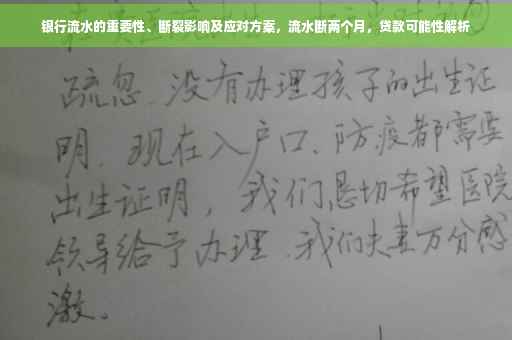 银行流水的重要性、断裂影响及应对方案，流水断两个月，贷款可能性解析
疏忽.没有办理孩子的出生证
明.现在入户口、防疫都需要
出生证明，我们恳切希望医院
领导给予办理.我们夫妻万分感
激。